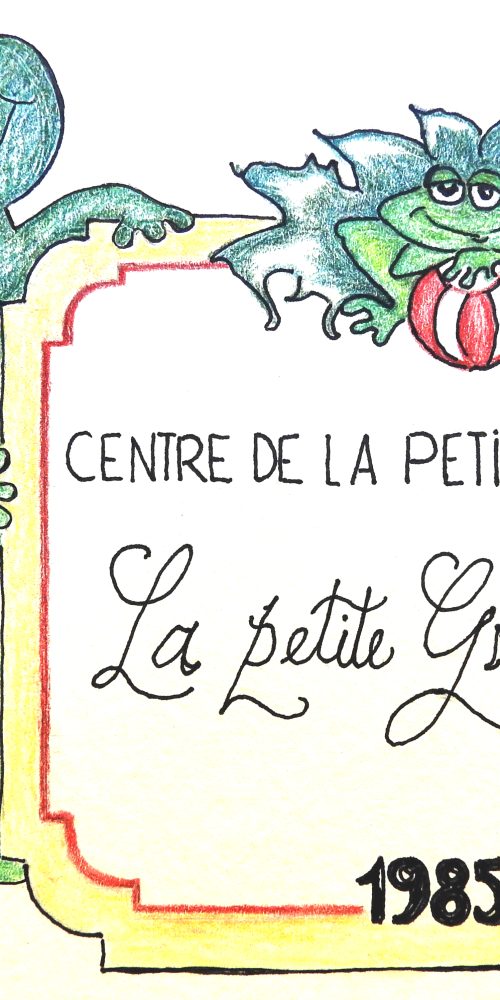 CENTRE DE LA PETI
La petite Gr
1985